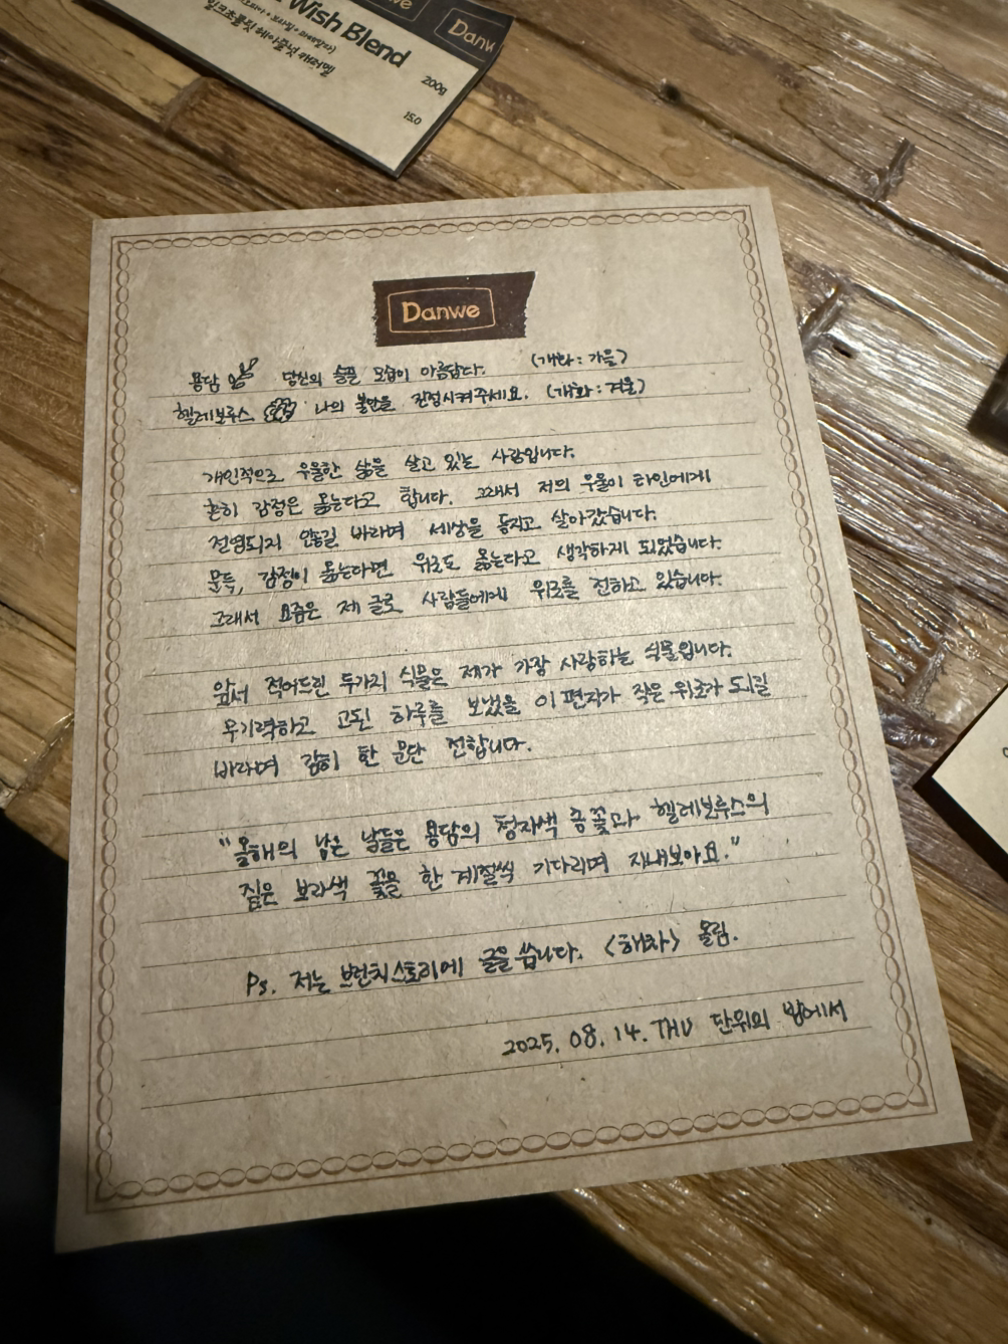 we
Danw
Wish Blend
밀크초콜릿 헤이즐넛 캐러멜
200g
15.0
Danwe
용담 당신의 슬픈 모습이 아름답다. (개화 : 가을)
헬레보루스 나의 불안을 진정시켜주세요. (개화 : 겨울)
개인적으로 우울한 삶을 살고 있는 사람입니다.
흔히 감정은 옮는다고 합니다. 그래서 저의 우울이 타인에게
전염되지 않길 바라며 세상을 등지고 살아갔습니다.
문득, 감정이 옮는다면 위로도 옮는다고 생각하게 되었습니다.
그래서 요즘은 제 글로 사람들에게 위로를 전하고 있습니다.
앞서 적어드린 두가지 식물은 제가 가장 사랑하는 식물입니다.
무기력하고 고된 하루를 보냈을 이 편지가 작은 위로가 되길
바라며 감히 한 문단 전합니다.
"올해의 남은 날들은 용담의 청자색 종꽃과 헬레보루스의
짙은 보라색 꽃을 한 계절씩 기다리며 지내보아요."
Ps. 저는 브런치스토리에 글을 씁니다. <해차> 올림.
2025. 08. 14. THU 단위의 밤에서